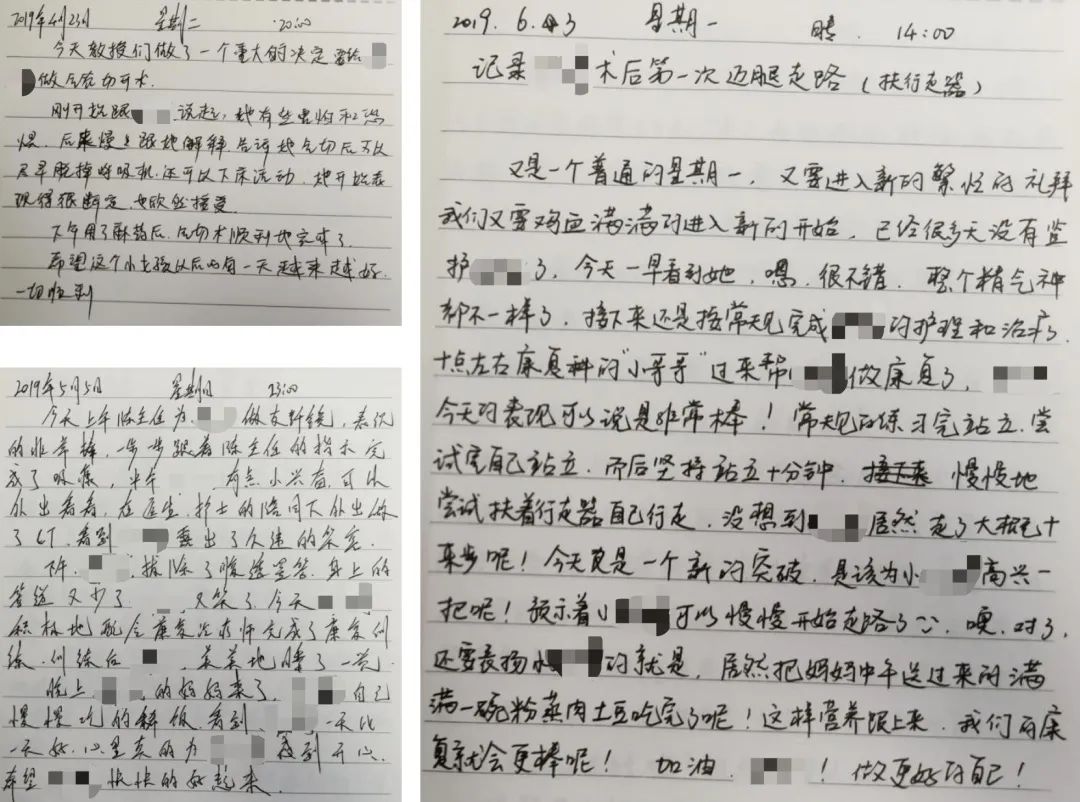 2019年4月23日 星期二 20:00
今天教授们做了一个重大的决定 要给
做气管切开术.
刚开始跟 说起, 她有些害怕和恐
惧. 后来慢慢跟她解释, 告诉她气切后可以
尽早脱掉呼吸机, 还可以下床活动, 她开始表
现得很断定, 也欣然接受.
下午用了麻药后, 气切术顺利地完成了.
希望这个小女孩以后的每一天越来越好.
一切顺利
2019年5月5日 星期日 23:00
今天上午陈主任为 做支纤镜, 表现
的非常棒, 一步一步跟着陈主任的指示完
成了吸痰, 中午 有点小兴奋, 可以
外出看看, 在医生, 护士的陪同下外出做
了CT, 看到 露出了久违的笑容.
下午, 拔除了 身上的
管道又少了 , 又笑了, 今天
积极地配合康复治疗师完成了康复训
练, 训练后 , 美美地睡了一觉.
晚上, 的妈妈来了, 自己
慢慢吃的稀饭, 看到 一天比
一天好, 心里真的为 感到开心.
希望 快快的好起来.
2019. 6. 3 星期一 晴. 14:00
记录 术后第一次迈腿走路 (扶行走器)
又是一个普通的星期一, 又要进入新的繁忙的礼拜
我们又要鸡血满满的进入新的开始, 已经很多天没有监
护 了, 今天一早看到她, 嗯, 很不错, 整个精气神
都不一样了, 接下来还是按常规完成 的护理和治疗,
十点左右康复科的“小哥哥”过来帮 做康复了,
今天的表现可以说是非常棒! 常规的练习完站立, 尝
试完自己站立, 而后坚持站立十分钟, 慢慢地
尝试扶着行走器自己行走, 没想到 居然走了大概七十
来步呢! 今天真是一个新的突破, 是该为小 高兴一
把呢! 预示着小 可以慢慢开始走路了, 噢, 对了,
还要表扬 的就是, 居然把妈妈中午送过来的满
满一碗粉蒸肉土豆吃完了呢! 这样营养跟上来, 我们的康
复就会更棒呢! 加油, ! 做更好的自己!